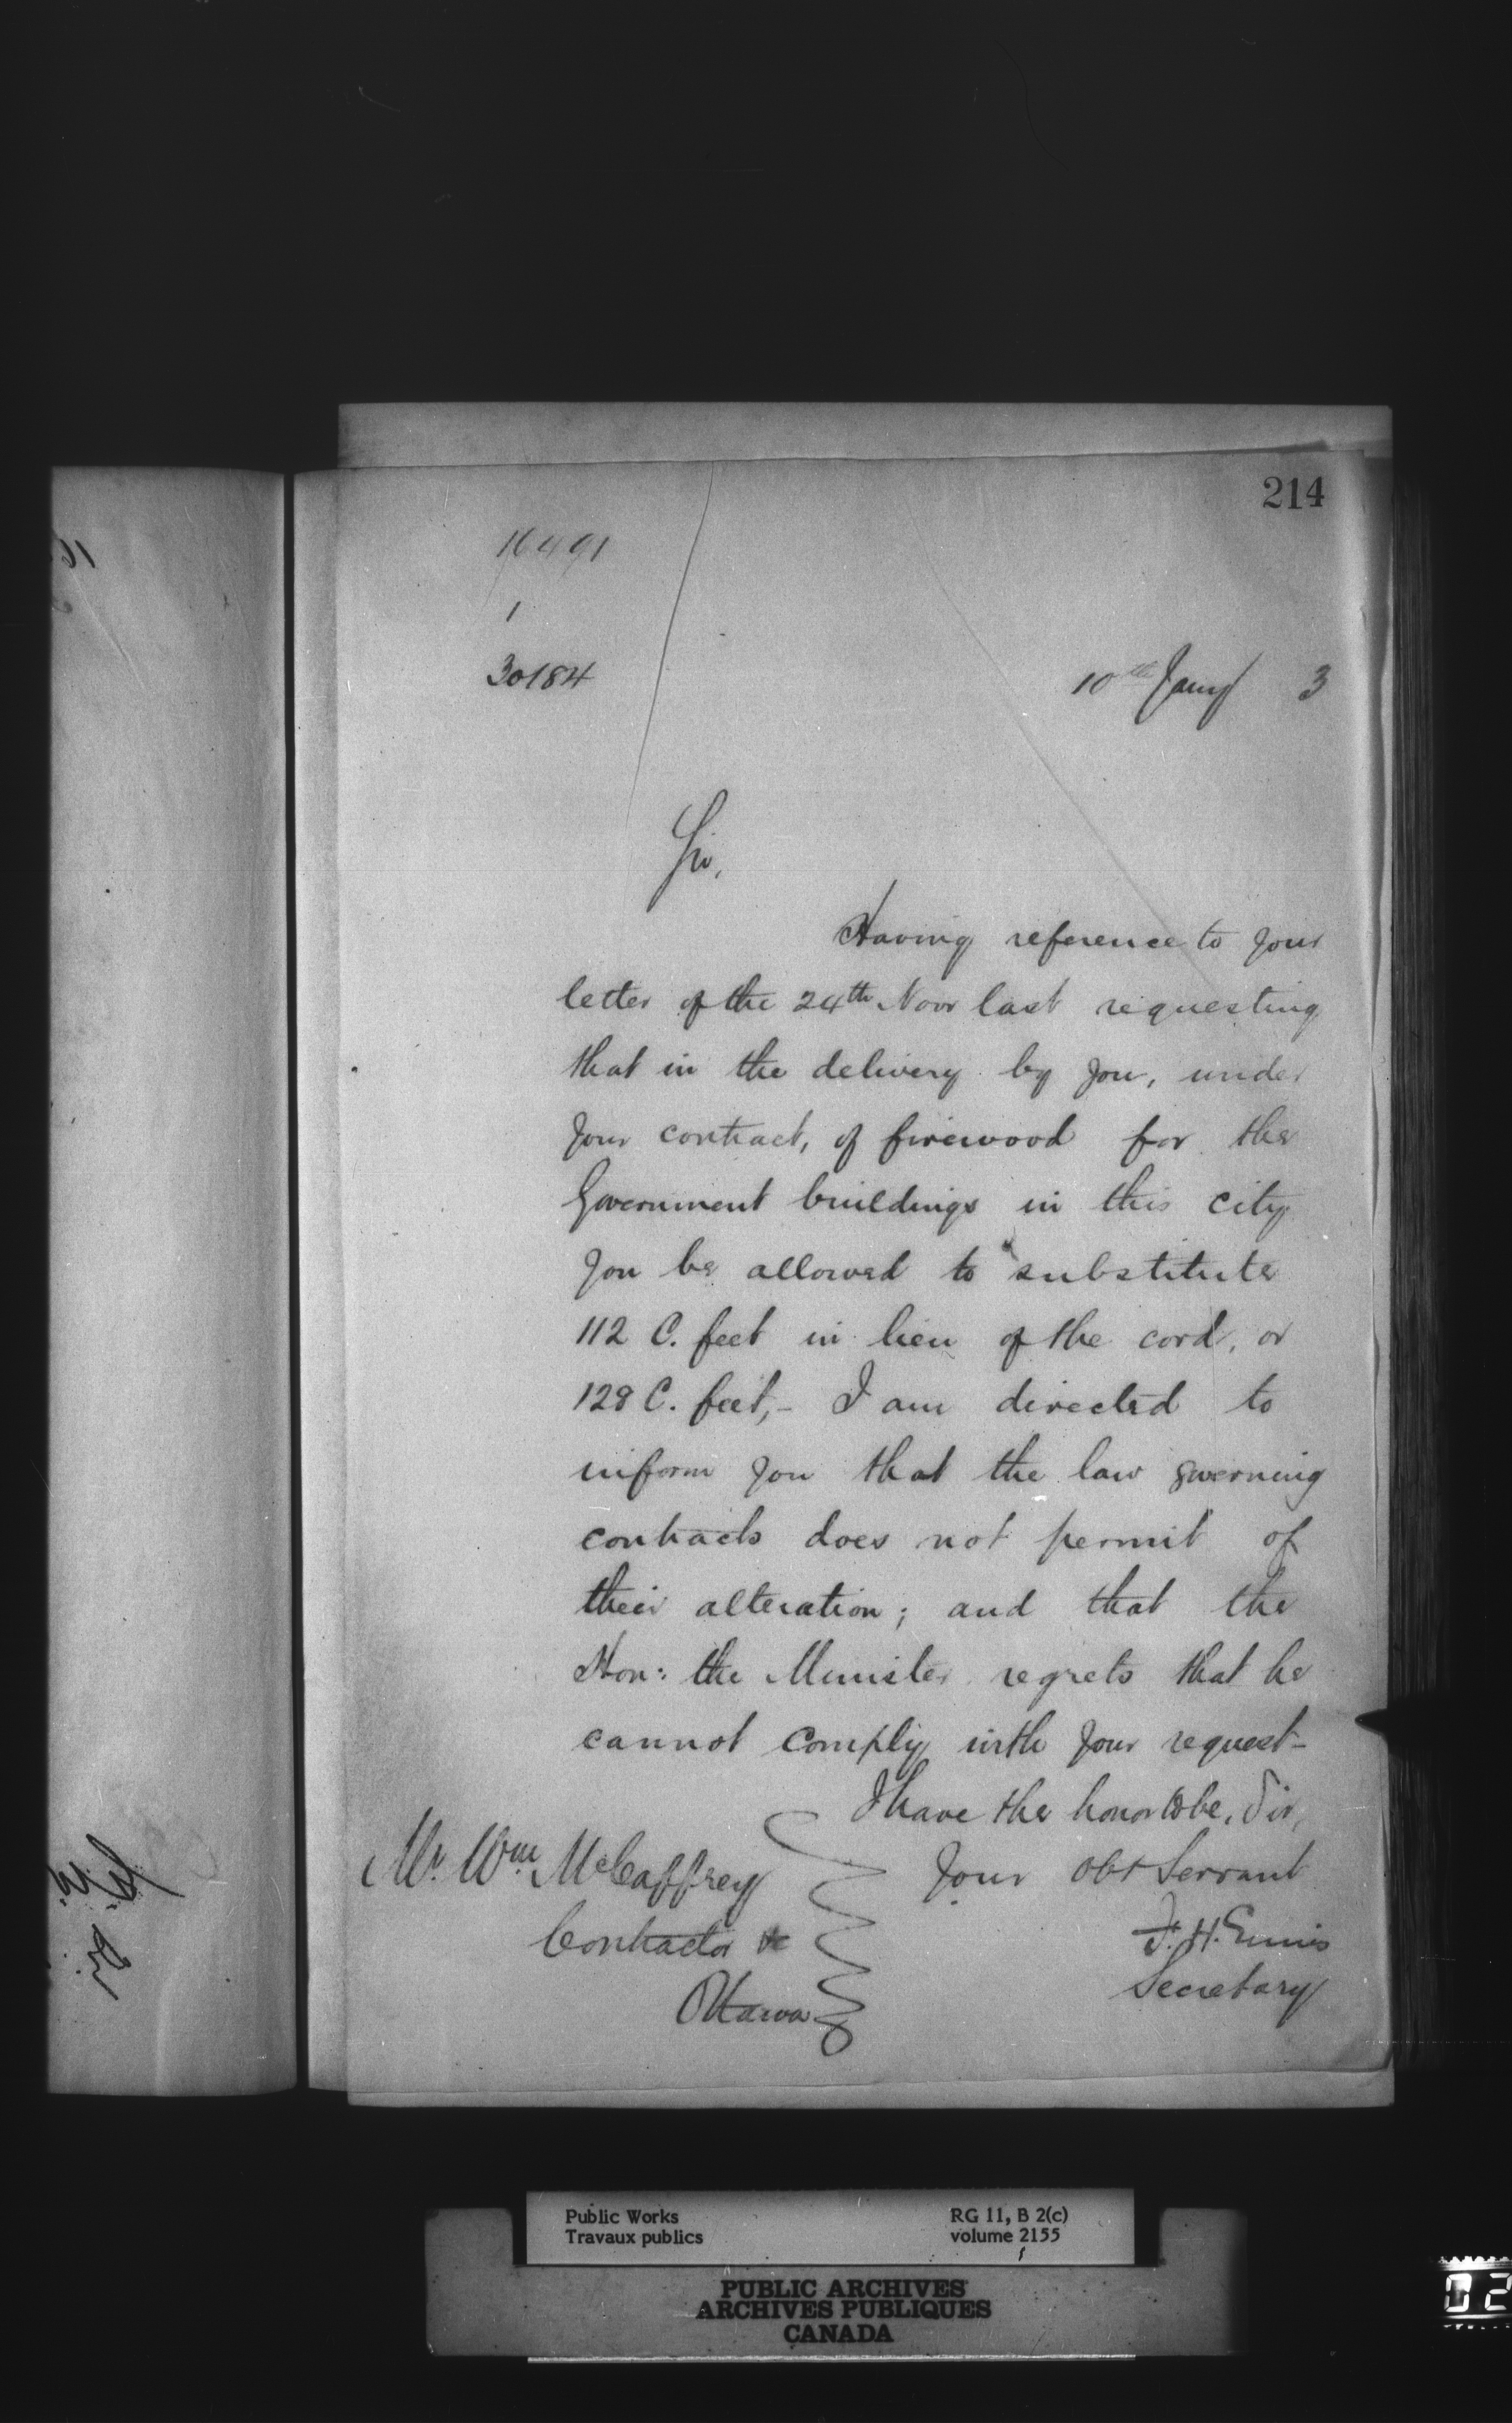 214
16491
1
30184
10th Jany 3
Sir,
Having reference to your
letter of the 24th Novr last requesting
that in the delivery by you, under
your contract, of firewood for the
Government buildings in this city
you be allowed to substitute
112 C. feet in lieu of the cord, or
128 C. feet,- I am directed to
inform you that the law governing
contracts does not permit of
their alteration; and that the
Hon: the Minister regrets that he
cannot comply with your request-
I have the honor to be, Sir,
Your Obt Servant
F. H. Ennis
Secretary
Mr. Wm McCaffrey
Contractor &c
Ottawa
Public Works
Travaux publics
RG 11, B 2(c)
volume 2155
PUBLIC ARCHIVES
ARCHIVES PUBLIQUES
CANADA
02